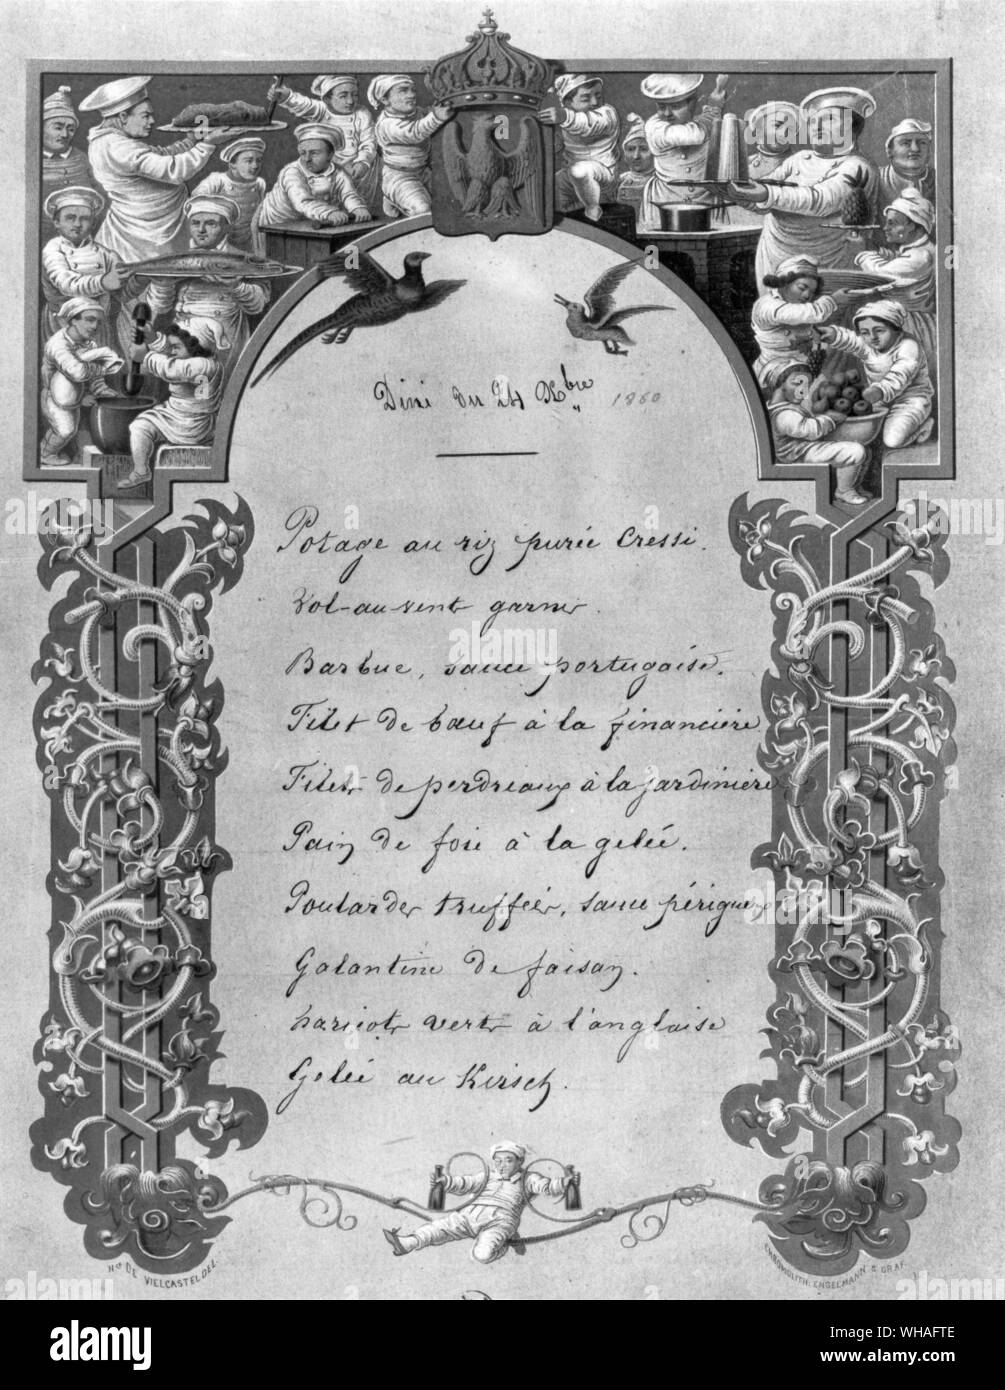 Diné du 24 Xbre 1860
Potage au riz purée Cressi.
Vol-au-vent garni.
Barbue, sauce portugaise.
Filet de bœuf à la financière
Filets de perdreaux à la jardinière
Pain de foie à la gelée.
Poulardes truffées, sauce périgueux
Galantine de faisan.
haricots verts à l'anglaise
Gelée au Kirsch.
DE VIELCASTEL DEL.
CHROMOLITH. ENGELMANN & GRAF.
alamy
alamy
Image ID: WHAFTE
www.alamy.com